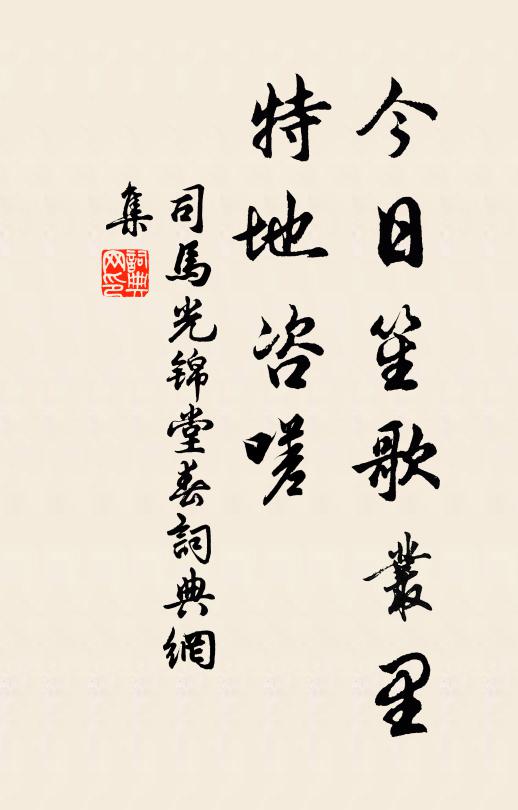 今日笙歌叢里
特地咨嗟
司馬光锦堂春詞典網
集
詞典网印